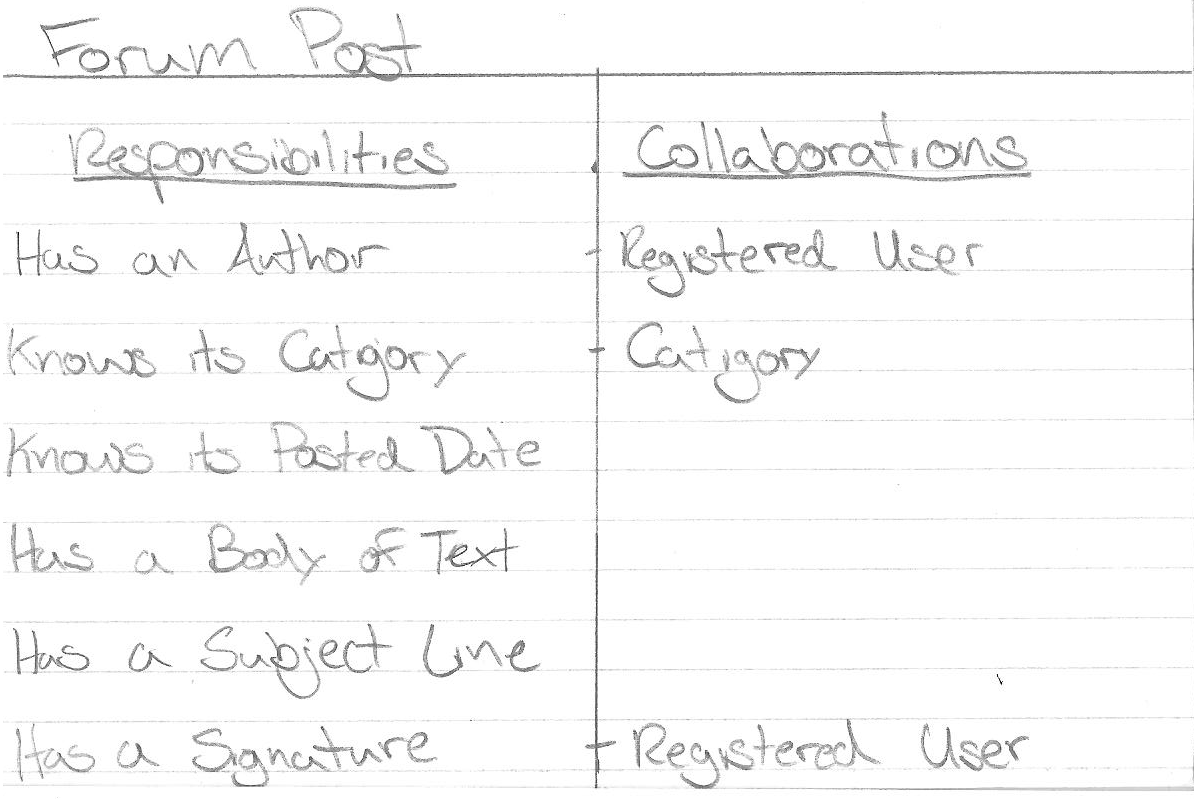 Forum Post
Responsibilities Collaborations
Has an Author - Registered User
Knows its Catgory - Catigory
Knows its Posted Date
Has a Body of Text
Has a Subject Line
Has a Signature - Registered User